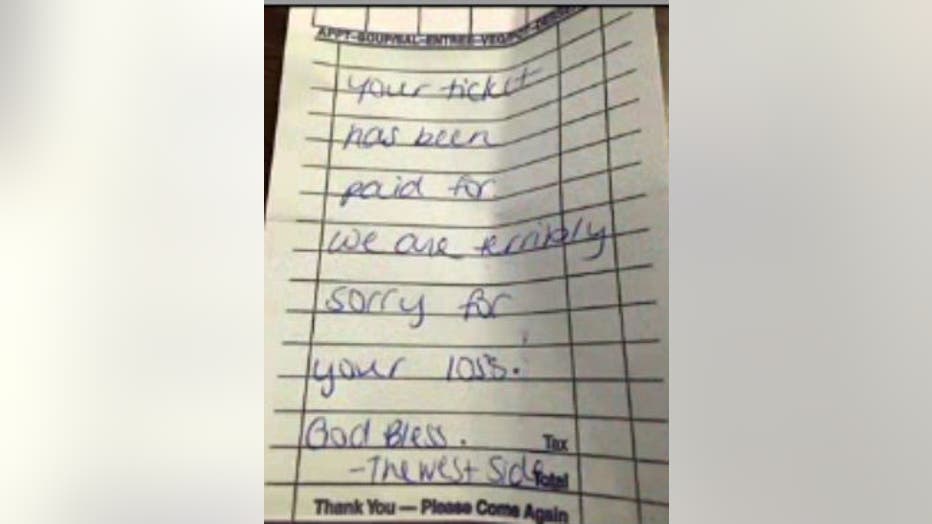 APPT-SOUP/SAL-ENTREE-VEG/POT-DESSERT
your ticket
has been
paid for
we are terribly
sorry for
your loss.
God Bless.
Tax
-The West Side
Total
Thank You — Please Come Again